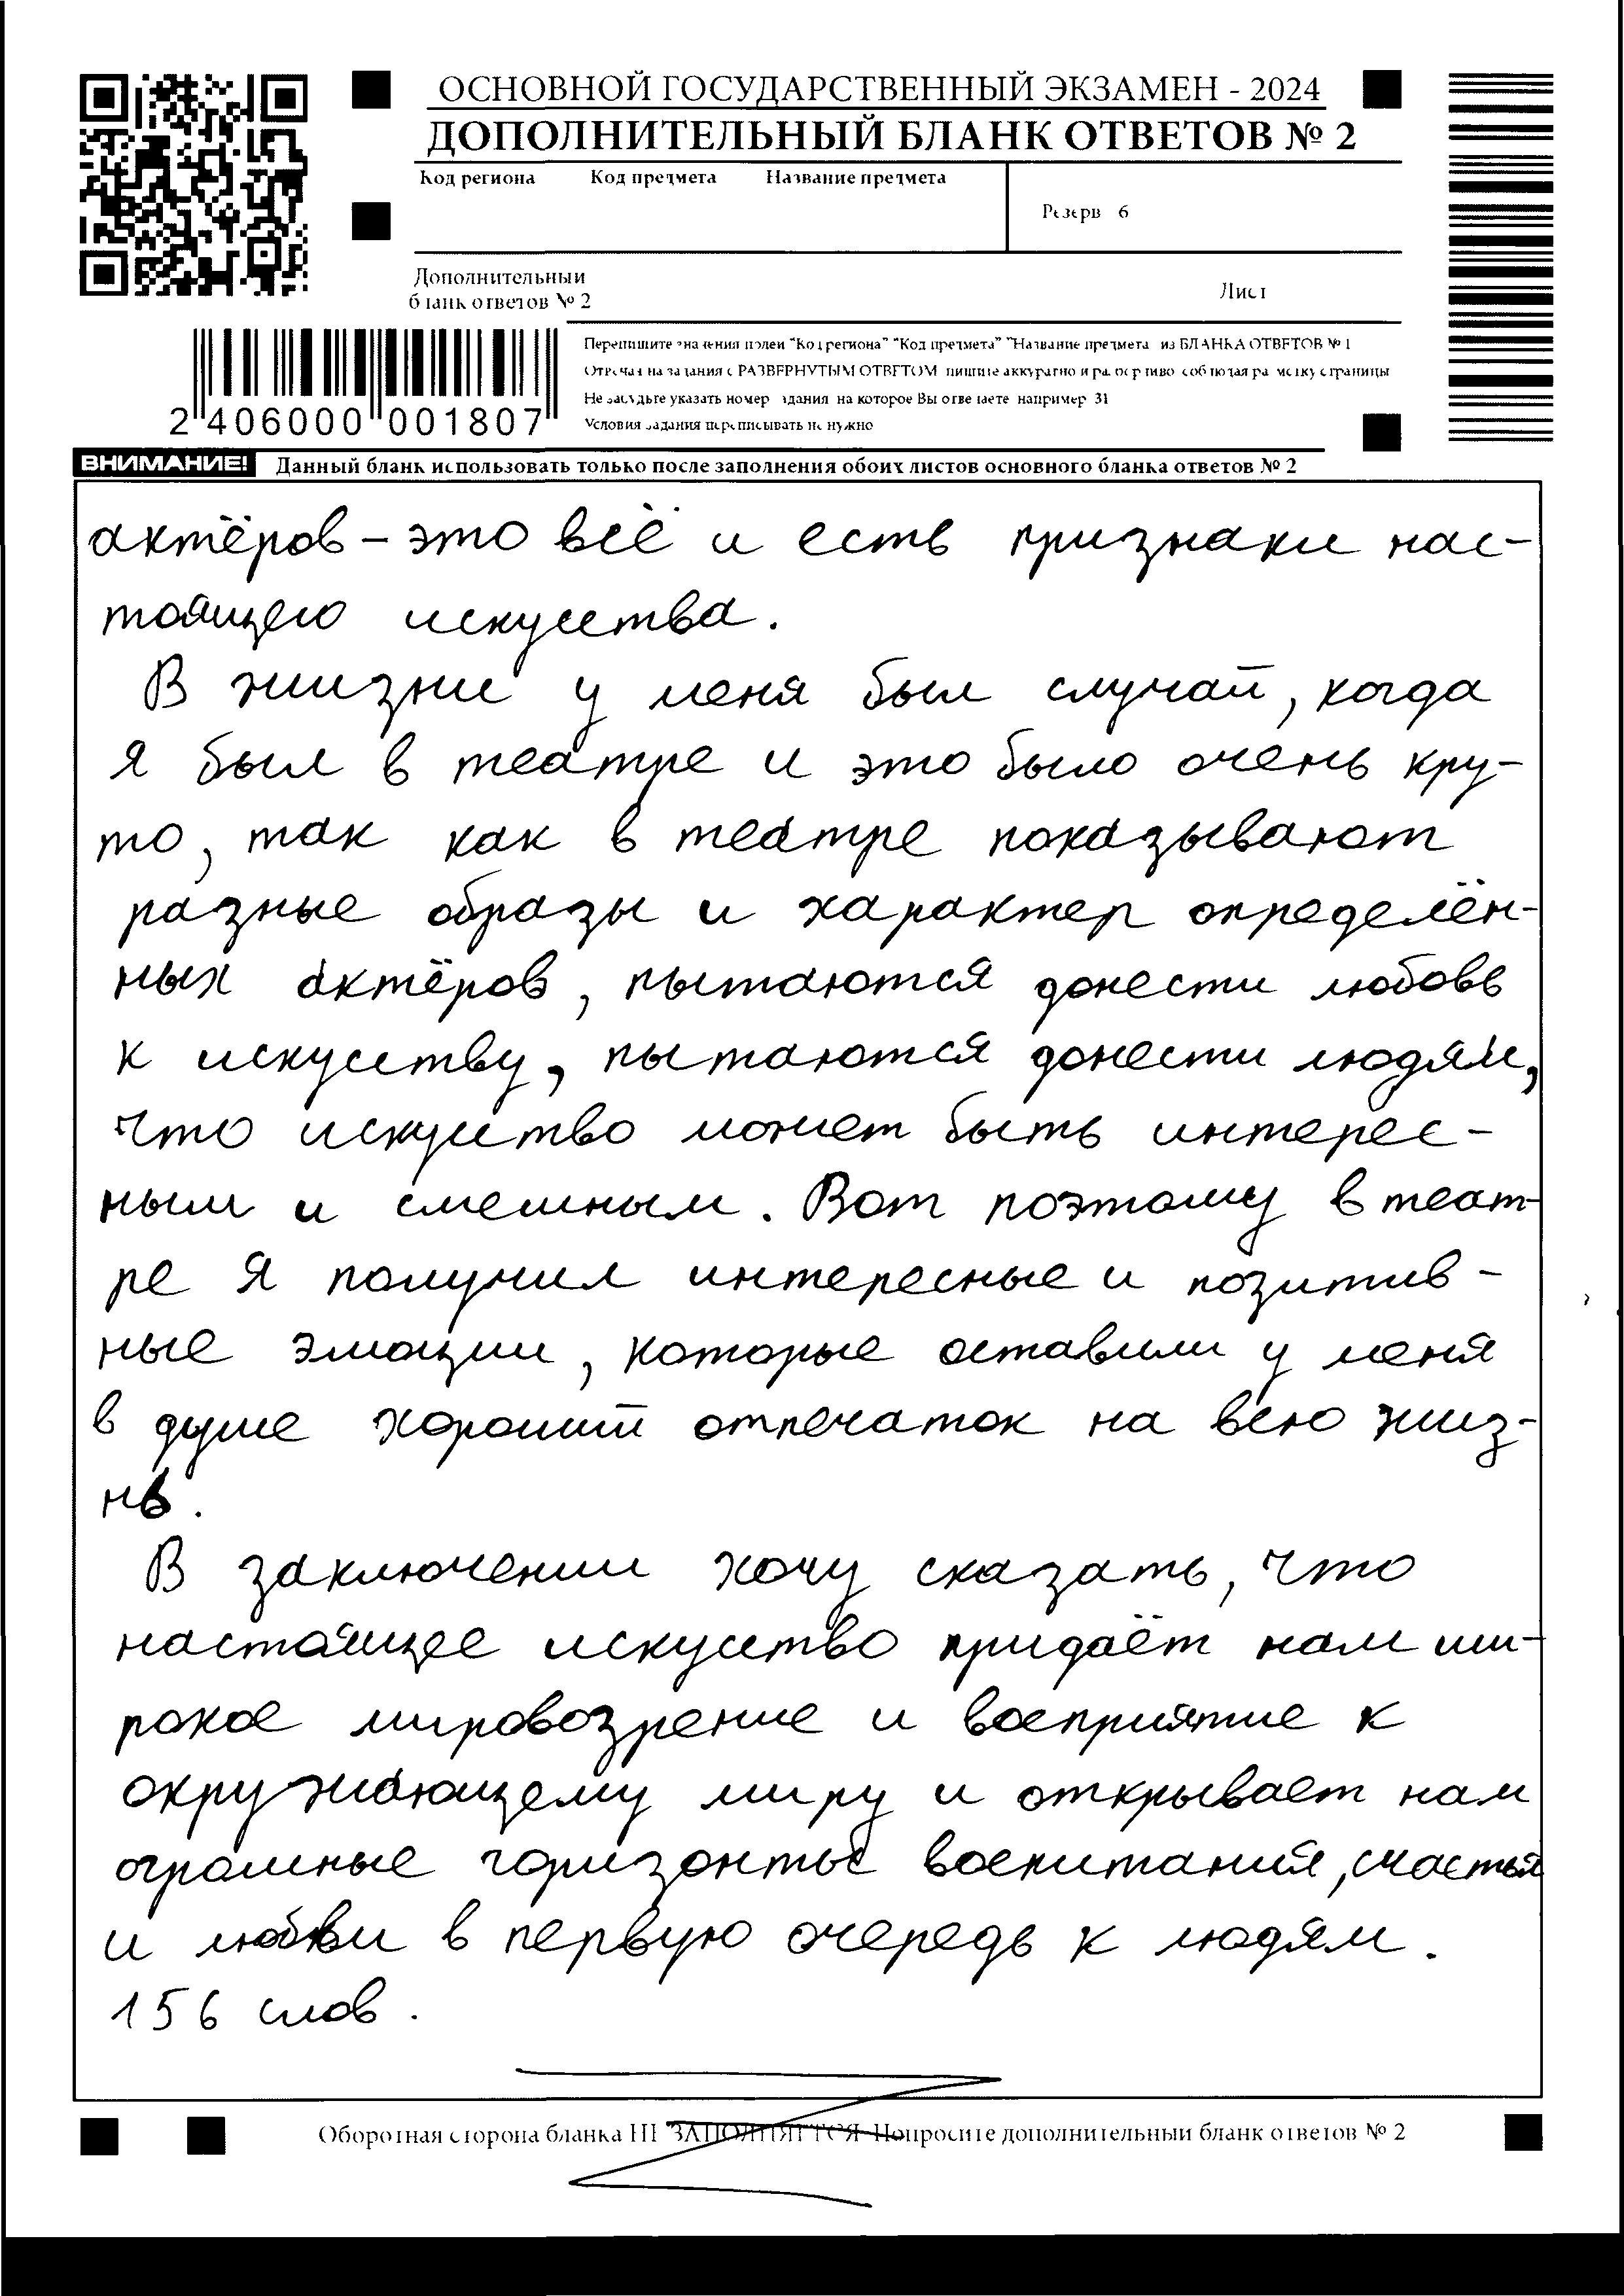 ОСНОВНОЙ ГОСУДАРСТВЕННЫЙ ЭКЗАМЕН - 2024
ДОПОЛНИТЕЛЬНЫЙ БЛАНК ОТВЕТОВ № 2
Код региона Код предмета Название предмета
Резерв 6
Дополнительный
бланк ответов № 2
Лист
Перепишите значения полей "Код региона" "Код предмета" "Название предмета из БЛАНКА ОТВЕТОВ № 1
Отвечая на задания с РАЗВЕРНУТЫМ ОТВЕТОМ пишите аккуратно и разборчиво соблюдая разметку страницы
Не забудьте указать номер задания на которое Вы отвечаете например 31
Условия задания переписывать не нужно
2 406000 001807
ВНИМАНИЕ! Данный бланк использовать только после заполнения обоих листов основного бланка ответов № 2
актёров - это всё и есть признаки нас-
тоящего искусства.
В жизни у меня был случай, когда
я был в театре и это было очень кру-
то, так как в театре показывают
разные образы и характер определён-
ных актёров, пытаются донести любовь
к искусству, пытаются донести людям,
что искуство может быть интерес-
ным и смешным. Вот поэтому в теат-
ре я получил интересные и позитив-
ные эмоции, которые оставили у меня
в душе хороший отпечаток на всю жиз-
нь.
В заключении хочу сказать, что
настоящее искуство придаёт нам ши-
рокое мировозрение и восприятие к
окружающему миру и открывает нам
огромные горизонты воспитания, счастья
и любви в первую очередь к людям.
156 слов.
Оборотная сторона бланка НЕ ЗАПОЛНЯЕТСЯ Попросите дополнительный бланк ответов № 2